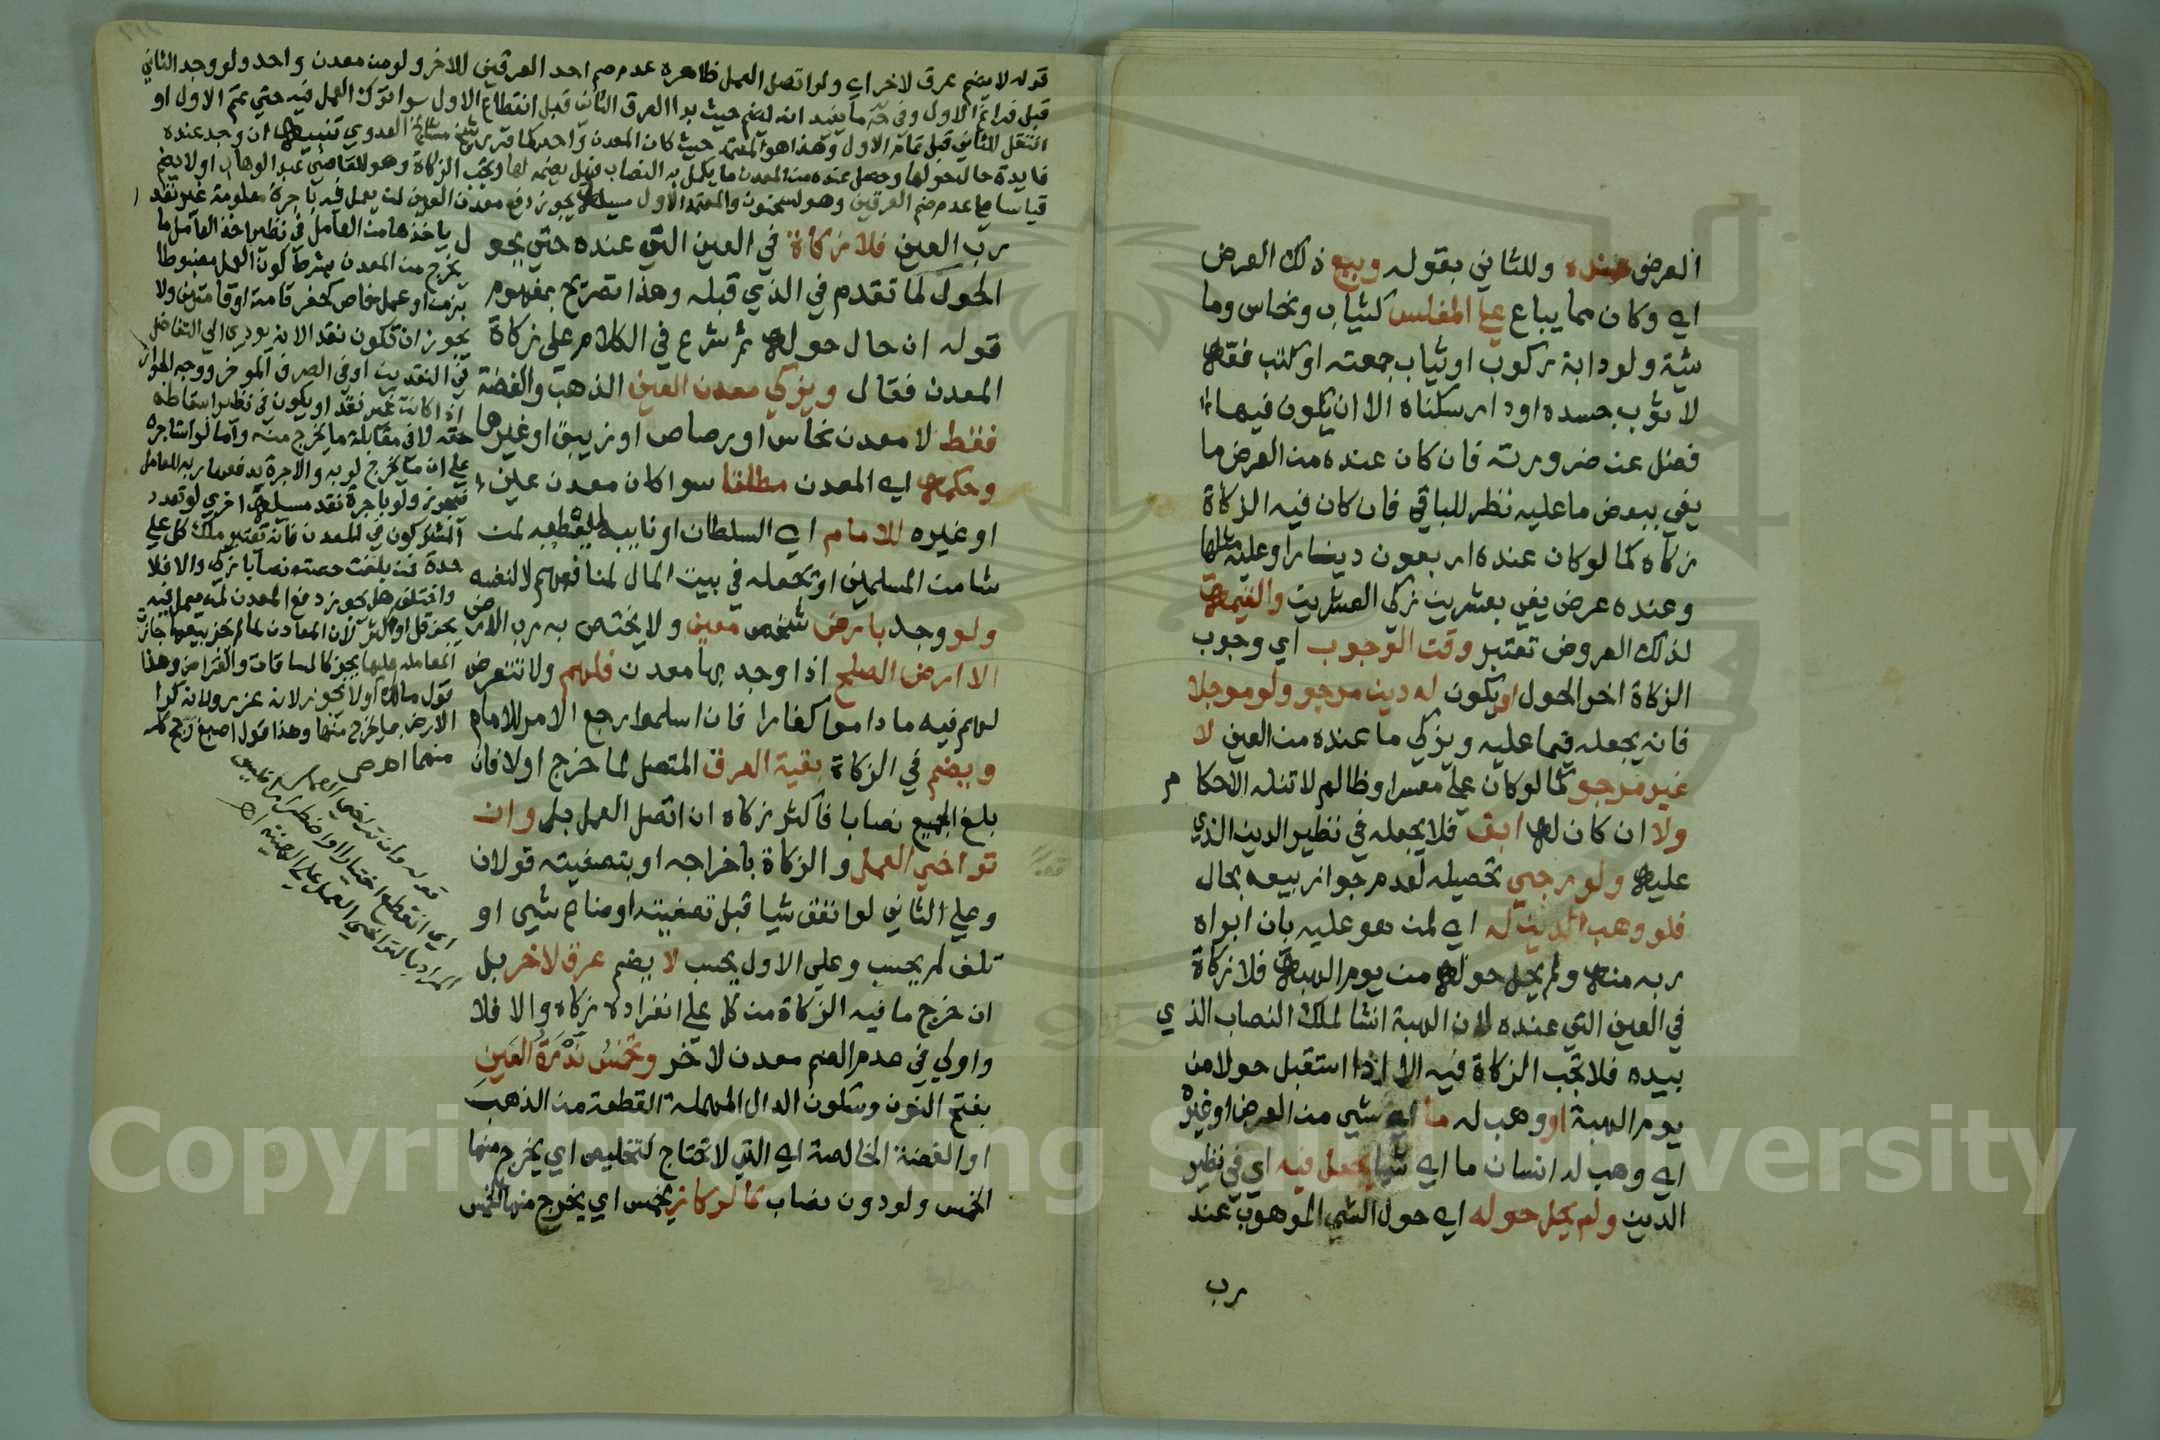 العرض عنده وللثاني بقوله وبيع ذلك العرض
اي وكان مما يباع على المفلس كثياب ونحاس وما
شية ولو دابة ركوب او ثياب جمعته او كتب فقه
لا ثوب جسده او دار سكناه الا ان يكون فيها
فضل عن ضرورته فان كان عنده من العرض ما
يفي ببعض ما عليه نظر للباقي فان كان فيه الزكاة
زكاه كما لو كان عنده اربعون دينارا وعليه مثلها
وعنده عرض يفي بعشرين زكي العشرين والقيمة
لذلك العروض تعتبر وقت الوجوب اي وجوب
الزكاة اخر الحول او يكون له دين مرجو ولو موجلا
فانه يجعله فيما عليه ويزكي ما عنده من العين لا
غير مرجو كما لو كان على معسر او ظالم لا تناله الاحكام
ولا ان كان له ابق فلا يجعله في نظير الدين الذي
عليه ولو رجي تحصيله لعدم جواز بيعه بحال
فلو وهب الدين له اي لمن هو عليه بان ابراه
ربه منه ولم يحل حوله من يوم الهبة فلا زكاة
في العين التي عنده لان الهبة انشا لملك النصاب الذي
بيده فلا تجب الزكاة فيه الا اذا استقبل حولا من
يوم الهبة او وهب له ما اي شي من العرض او غيره
اي وهب له انسان ما اي شيا يجعل فيه اي في نظير
الدين ولم يحل حوله اي حول الشي الموهوب عند
رب
قوله لا يضم عرق لاخر اي ولو اتصل العمل ظاهره عدم ضم احد العرقين للاخر ولو من معدن واحد ولو وجد الثاني
قبل فراغ الاول وفي ما يفيد انه يضم حيث بدا العرق الثاني قبل انقطاع الاول سوا ترك العمل فيه حتى يتم الاول او
انتقل للثاني قبل تمام الاول وهذا هو المعتمد حيث كان المعدن واحد كما قرر شيخ مشايخنا العدوي تنبيه ان وجد عنده
فايدة حال حولها وحصل عنده من المعدن ما يكمل به النصاب فهل يضمه لها وتجب الزكاة وهو للقاضي عبد الوهاب او لا يضم
قياسا على عدم ضم العرقين وهو لسحنون والمعتمد الاول مسيلة يجوز دفع معدن العين لمن يعمل فيه باجرة معلومة غير نقد
ياخذها من العامل في نظير اخذ العامل ما
يخرج من المعدن بشرط كون العمل مضبوطا
بزمن او عمل خاص كحفر قامة او قامتين ولا
يجوز ان تكون نقدا لانه يودي الى التفاضل
في النقدين او في الصرف الموخر ووجه الجواز
اذا كانت غير نقد او يكون في نظير اسقاطه
حقه لا في مقابلة ما يخرج منه واما لو استاجره
على ان ما يخرج لربه والاجرة يدفعها ربه للعامل
فيجوز ولو باجرة نقد مسيلة اخرى لو تعدد
المشتركون في المعدن فانه تعتبر ملك كل على
حدة فمن بلغت حصته نصابا زكى والا فلا
واختلف هل يجوز دفع المعدن لمن يعمل فيه
بجزء قل او كثر لان المعادن لما لم يجز بيعها جاز
المعامله عليها بجزء كالمساقات والقراض وهذا
قول مالك او لا يجوز لانه غرر ولانه كرا
الارض بما يخرج منها وهذا قول اصبغ رجح كل
منهما اهـ ص
قوله وان تراخى العمل
اي انقطع اختيارا او اضطرارا
المراد بالتراخي العمل على الهينة اهـ
رب العين فلا زكاة في العين التي عنده حتى يحول
الحول كما تقدم في الذي قبله وهذا تصريح بمفهوم
قوله ان حال حوله ثم شرع في الكلام على زكاة
المعدن فقال ويزكي معدن العين الذهب والفضة
فقط لا معدن نحاس او رصاص او زيبق او غيرها
وحكمه اي المعدن مطلقا سوا كان معدن عين
او غيره للامام اي السلطان او نايبه يقطعه لمن
شا من المسلمين او يجعله في بيت المال لمنافعهم لا لنفسه
ولو وجد بارض شخص معين ولا يختص به رب الارض
الا ارض الصلح اذا وجد بها معدن فلهم ولا نتعرض
لهم فيه ما داموا كفارا فان اسلموا رجع الامر للامام
ويضم في الزكاة بقية العرق المتصل لما خرج اولا فان
بلغ الجميع نصابا فاكثر زكاه ان اتصل العمل بل وان
تراخي العمل والزكاة باخراجه او بتصفيته قولان
وعلى الثاني لو انفق شيا قبل تصفيته او ضاع شي او
تلف لم يحسب وعلى الاول يحسب لا يضم عرق لاخر بل
ان خرج ما فيه الزكاة من كل على انفراده زكاه والا فلا
واولي في عدم الضم معدن لاخر وتخمس ندرة العين
بفتح النون وسكون الدال المهملة القطعة من الذهب
او الفضة الخالصة اي التي لا تحتاج لتخليص اي يخرج منها
الخمس ولو دون نصاب كالركاز يخمس اي يخرج منه الخمس